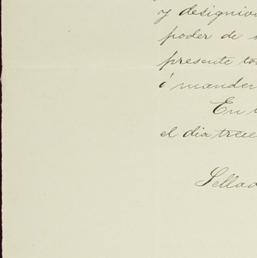 y designio
poder de
presente to
ó mander
En
el dia trece
Sellad